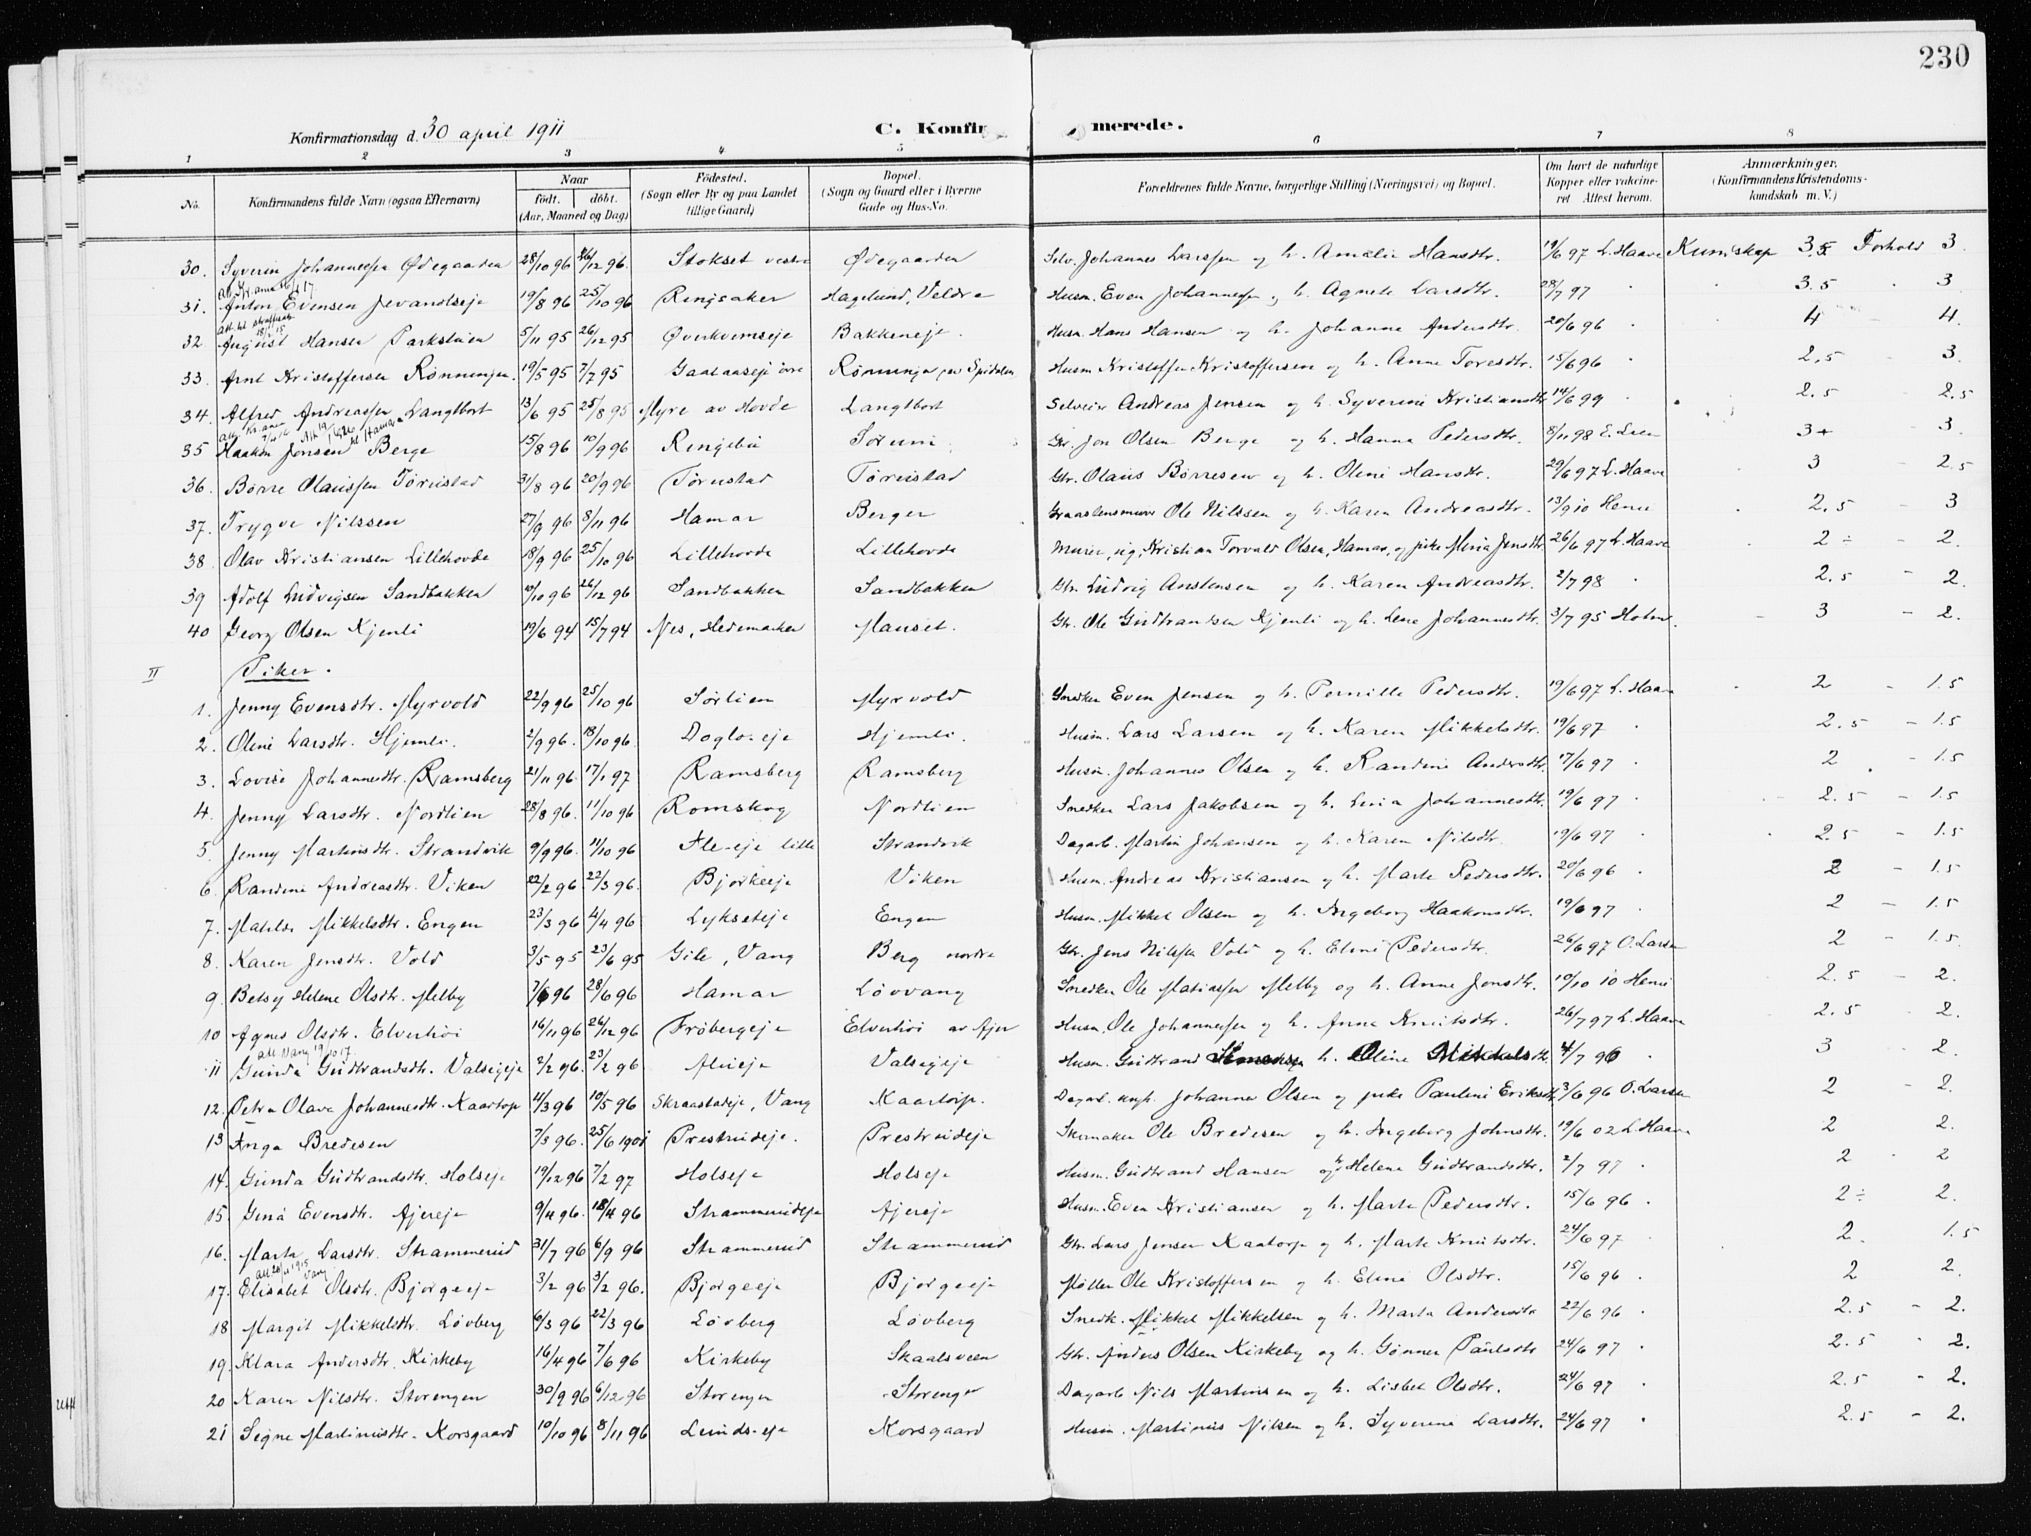 230
Konfirmationsdag d. 30 april 1911 C. Konfir merede.
1 2 3 4 5 6 7 8
No. Konfirmandens fulde Navn (ogsaa Efternavn) Naar født. døbt. (Aar, Maaned og Dag) Fødested. (Sogn eller By og paa Landet tillige Gaard) Bopæl. (Sogn og Gaard eller i Byerne Gade og Hus-No. Forældrenes fulde Navne, borgerlige Stilling (Næringsvei) og Bopæl. Om havt de naturlige Kopper eller vakcineret Attest herom. Anmærkninger. (Konfirmandens Kristendomskundskab m. V.)
30. Syverin Johannessen Ødegaarden 28/10 96 26/12 96. Stokset vestre Ødegaarden Selv. Johannes Larssen og h. Amalie Hansdtr. 19/6 97 L. Haave Kunskap 3.5 Forhold 3.
31. Anton Evensen Jevandseje 19/8 96 25/10 96 Ringsaker Hagelund, Veldre Husm. Even Johannessen og h. Agnete Larsdtr. 28/7 97 3.5 3
32. August Hansen Parkstuen 5/11 95 26/12 95 Øverkvernseje Bakkeneje. Husm. Hans Hansen og h. Johanne Andersdtr. 20/6 96 4 4.
33. Arnt Kristoffersen Rønningen. 19/5 95 7/7 95 Gaalaaseje øvre Rønningen Husm Kristoffer Kristoffersen og h. Anne Toresdtr. 15/6 96 2.5 3.
34. Alfred Andreassen Langtbort 13/6 95 25/8 95 Myre av Hovde Langtbort Selveier Andreas Jensen og h. Syverine Kristiansdtr 14/6 99 2.5 2.5
35 Haakon Jonsen Berge 15/8 96 10/9 96 Ringebu Sorum Gbr. Jon Olsen Berge og h. Hanna Pedersdtr. 8/11 98 E. Lien 3+ 3.
36. Børre Olaussen Tørrustad 31/8 96 20/9 96 Tørrustad Tørrustad Gbr. Olaus Børresen og h. Oline Hansdtr. 29/6 97 L. Haave 3 2.5
37. Trygve Nilssen 27/9 96 8/11 96 Hamar Berger Graastensmurer Ole Nilssen og h. Karen Andreasdtr. 13/9 10 2.5 3
38. Olav Kristiansen Lillehovde 18/9 96 25/10 96 Lillehovde Lillehovde Murer, ug, Kristian Torvald Olsen, Hamar, og pike Mina Jensdtr. 26/6 97 L. Haave 2 ÷ 2.
39 Adolf Ludvigsen Sandbakken 10/10 96 26/12 96 Sandbakken Sandbakken Gbr. Ludvig Anstensen og h. Karen Andreasdtr. 2/7 98 2.5 - 2.
40 Georg Olsen Kjenli 19/6 94 15/7 94 Nes, Hedemarken Hauset. Gbr. Ole Gudbrandsen Kjenli og h. Lene Johannesdtr. 3/7 95 Holm. 3 - 2.
II Piker.
1. Jenny Evensdtr. Myrvold 22/9 96 25/10 96 Sørlien Myrvold Snedker Even Jensen og h. Pernille Pedersdtr. 19/6 97 L. Haave 2 - 1.5
2. Oline Larsdtr. Hjemli. 2/9 96. 18/10 96. Doglo-eje Hjemli. Husm. Lars Larsen og h. Karen Mikkelsdtr. 19/6 97 2.5 - 1.5
3. Lovise Johannesdtr. Ramsberg 21/11 96 17/1 97 Ramsberg Ramsberg Husm. Johannes Olsen og h. Randine Andersdtr. 17/6 97 2 - 1.5
4. Jenny Larsdtr. Nordlien 28/8 96. 11/10 96 Romskog Nordlien Snedker Lars Jakobsen og h. Lina Johannesdtr. 19/6 97 2.5 - 1.5
5. Jenny Martinsdtr. Strandvik 9/9 96. 11/10 96 Fle-eje lille Strandvik Dagarb. Martin Johansen og h. Karen Nilsdtr. 19/6 97 2.5 - 1.5
6. Randine Andreasdtr. Viken 22/2 96. 22/3 96. Bjørkeeje Viken Husm. Andreas Kristiansen og h. Marte Pedersdtr. 20/6 96 2 - 1.5
7. Matilde Mikkelsdtr. Engen 23/3 96 4/4 96 Lykseteje Engen Husm. Mikkel Olsen og h. Ingeborg Haakonsdtr. 19/6 97 2 - 1.5
8. Karen Jensdtr. Vold 3/5 95 23/6 95 Gile, Vang Berg nordre Gbr. Jens Nilssen Vold og h. Eline Pedersdtr. 26/6 97 O. Larsen 2 - 1.5
9. Betsy Helene Olsdtr. Melby 7/6 96 28/6 96 Hamar Løvvang Snedker Ole Matiassen Melby og h. Anne Jensdtr. 19/10 10 2.5 - 2.
10 Agnes Olsdtr. Elverhøi 16/11 96 26/12 96 Frøbergeje Elverhøi av Ajer Husm. Ole Johannessen og h. Anne Knutsdtr. 26/7 97 L. Haave 2.5 2.
11 Gunda Gudbrandsdtr. Valsegeje 2/2 96. 23/2 96 Alueje Valsegeje Husm. Gudbrand h. Oline Mikkelsdtr 4/7 96 3 - 2.
12. Petra Olava Johannesdtr. Kaartorp 11/3 96 10/5 96 Skraastadeje, Vang Kaartorp. Dagarb. ungk. Johannes Olsen og pike Pauline Eriksdtr. 3/6 96 O. Larsen 2 - 2.
13 Inga Bredesen 7/3 96. 25/6 1901 Prestrudeje. Prestrudeje Skomaker Ole Bredesen og h. Ingeborg Johnsdtr. 19/6 02 L. Haave 2 2.
14. Gunda Gudbrandsdtr. Holseje 19/12 96 7/2 97 Holseje Holseje Husm. Gudbrand Hansen og h. Helene Gudbrandsdtr. 2/7 97 2 2
15 Gina Evensdtr. Ajereje 9/4 96. 18/4 96 Strammerudeje Ajereje Husm. Even Kristiansen og h. Marte Pedersdtr. 15/6 96 2 ÷ 2.
16. Marta Larsdtr. Strammerud 31/7 96 6/9 96 Strammerud Strammerud Gbr. Lars Jensen Kaatorp og h. Marte Knutsdtr. 24/6 97 2. 1.5
17. Elisabet Olsdtr. Bjørgeeje 3/2 96 3/2 96. Bjørgeeje Bjørgeeje Møller Ole Kristoffersen og h. Eline Olsdtr. 15/6 96 2 2.
18 Margit Mikkelsdtr. Løvberg 6/3 96 22/3 96 Løvberg Løvberg Snedk. Mikkel Mikkelsen og h. Marta Andersdtr 22/6 96 2.5 - 2.
19. Klara Andersdtr. Kirkeby 16/4 96 7/6 96 Kirkeby Skaalsveen Gbr. Anders Olsen Kirkeby og h. Gønner Paulsdtr 24/6 97 2.5 - 2.
20 Karen Nilsdtr. Storengen 30/9 96 6/12 96 Storengen Storengen Dagarb Nils Martinsen og h. Lisbet Olsdtr. 24/6 97 2.5 - 2.
21 Signe Martinusdtr. Korsgaard 10/10 96 8/11 96 Lunds-eje Korsgaard Husm. Martinus Nilsen og h. Syverine Larsdtr. 24/6 97 2.5 - 2.